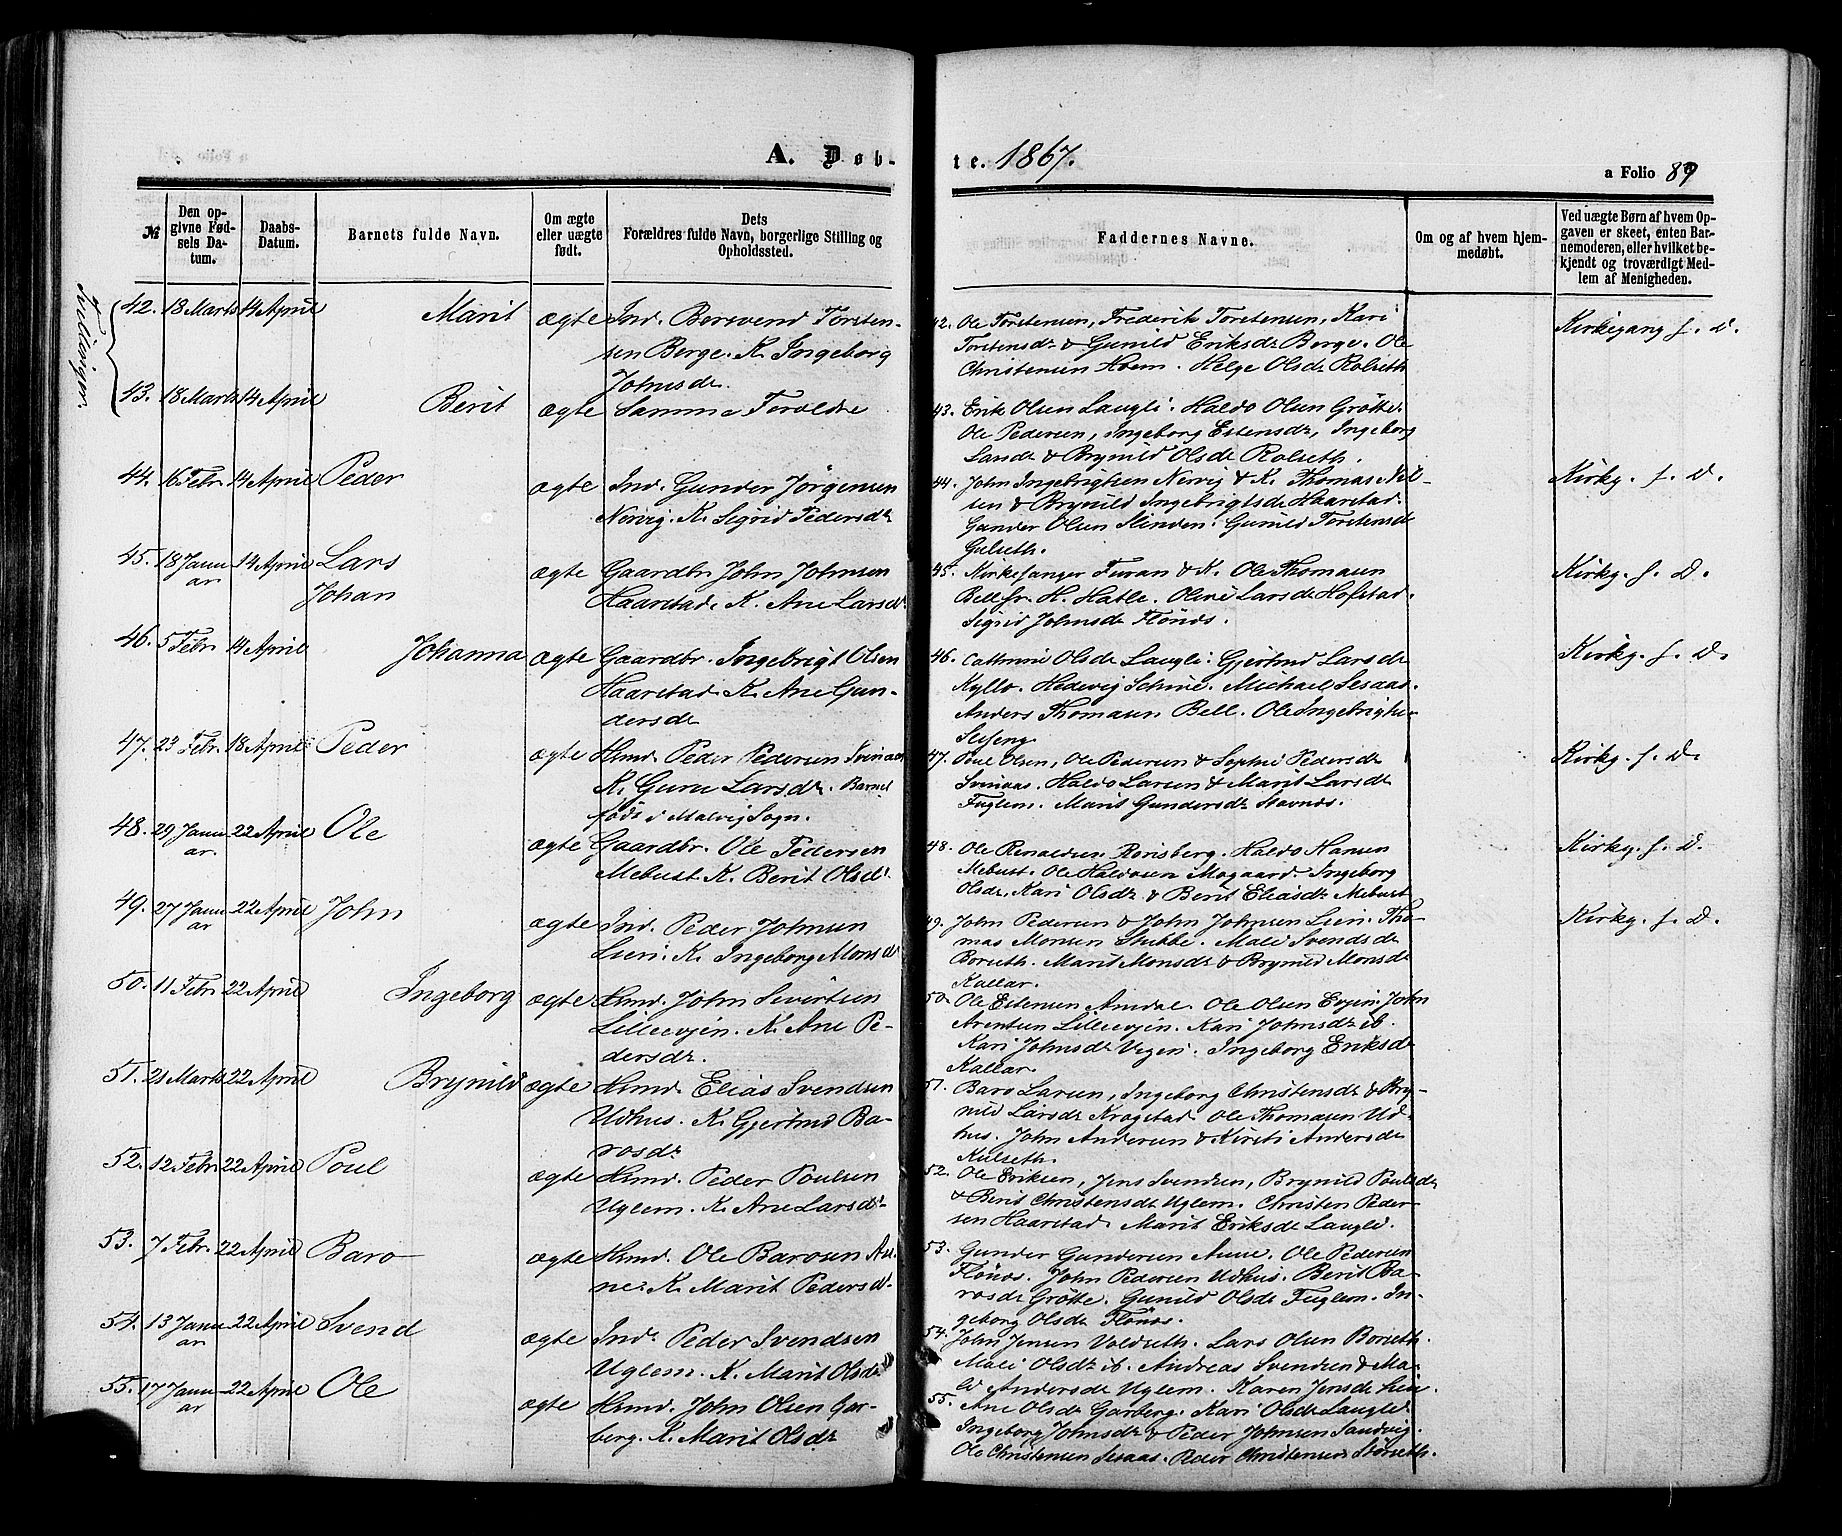 A. Døb-
te. 1867.
a Folio 89
№
Den op-
givne Fød-
sels Da-
tum.
Daabs-
Datum.
Barnets fulde Navn.
Om ægte
eller uægte
født.
Dets
Forældres fulde Navn, borgerlige Stilling og
Opholdssted.
Faddernes Navne.
Om og af hvem hjem-
medøbt.
Ved uægte Børn af hvem Op-
gaven er skeet, enten Bar-
nemoderen, eller hvilket be-
kjendt og troværdigt Med-
lem af Menigheden.
Tvillinger.
42. 18 Marts 14 April Marit ægte Ind. Bersvend Torsten-
sen Berge. K. Ingeborg
Johnsdr.
42. Ole Torstensen, Frederik Torstensen, Kari
Torstensdr & Gunild Eriksdr Berge. Ole
Christensen Hoem. Helge Olsdr Rolseth
Kirkegang f. D.
43. 18 Marts 14 April Berit ægte Samme Foreldre
43. Erik Olsen Laugli. Haldo Olsen Grøtte.
Ole Pedersen, Ingeborg Estensdr, Ingeborg
Larsdr & Brynild Olsdr Rolseth.
44. 16 Febr 14 April Peder ægte Ind. Gunder Jørgensen
Nervig. K. Sigrid Pedersdr
44. John Ingebrigtsen Nervig & K. Thomas Nil-
sen & Brynild Ingebrigtsdr Haarstad.
Gunder Olsen Slinden. Gunild Torstensdr
Gulseth.
Kirkg. f. D.
45. 18 Janu
ar 14 April Lars
Johan ægte Gaardbr John Johnsen
Haarstad. K. Ane Larsdr
45. Kirkesanger Furan & K. Ole Thomasen
Bell. Oline Larsdr Hofstad.
Sigrid Johnsdr Flönæs.
Kirkg. f. D.
46. 5 Febr 14 April Johanna ægte Gaardbr. Ingebrigt Olsen
Haarstad K. Ane Gun-
dersdr
46. Cathrine Olsdr Laugli. Gjertrud Larsdr
Kyllo. Hedevig Schive. Michael Sesaas.
Anders Thomasen Bell. Ole Ingebrigtsen
Kirkg. f. D.
47. 23 Febr. 18 April Peder ægte Hsmd. Peder Pedersen Svinaas
K. Guru Larsdr. Barnet
født i Malvig Sogn.
47. Poul Olsen, Ole Pedersen & Sophie Pedersdr
Svinaas. Haldo Larsen & Marit Larsdr
Fuglem. Marit Gundersdr Stavnæs.
Kirkg. f. D.
48. 29 Janu
ar. 22 April Ole ægte Gaardbr. Ole Pedersen
Mebust K. Berit Olsdr.
48. Ole Renaldsen Rønsberg. Haldo Hansen
Mebust. Ole Haldosen Mogaard. Ingeborg
Olsdr, Kari Olsdr & Berit Eliasdr Mebust
Kirkg. f. D.
49. 27 Janu
ar 22 April John ægte Ind. Peder Johnsen
Lien. K. Ingeborg Monsdr
49. John Pedersen & John Johnsen Lien. Tho-
mas Monsen Stubbe. Mali Svendsdr
Borseth. Marit Monsdr & Brynild Monsdr
Kallar.
Kirkg. f. D.
50. 11 Febr 22 April Ingeborg ægte Hsmd. John Sivertsen
Lilleevjen. K. Ane Pe-
dersdr.
50. Ole Estensen Amdal. Ole Olsen Evjen. John
Arentsen Lilleevjen. Kari Johnsdr ib.
Kari Johnsdr Vegen. Ingeborg Eriksdr
Kallar.
51. 21 Marts 22 April Brynild ægte Hsmd. Elias Svendsen
Udhus. K. Gjertrud Ba-
rosdr
51. Baro Larsen, Ingeborg Christensdr & Bry-
nild Larsdr Krogstad. Ole Thomasen Ud-
hus. John Andersen & Kirsti Andersdr
Kulseth.
52. 12 Febr 22 April Poul ægte Hsmd. Peder Poulsen
Uglem. K. Ane Larsdr.
52. Ole Eriksen, Jens Svendsen, Brynild Poulsdr
& Berit Christensdr Uglem. Christen Peder-
sen Haarstad. Marit Eriksdr Laugli.
53. 7 Febr. 22 April Baro ægte Hsmd. Ole Barosen Au-
ne. K. Marit Pedersdr.
53. Gunder Gundersen Aune. Ole Pedersen
Flönæs. John Pedersen Udhus. Berit Ba-
rosdr Grøtte. Gunild Olsdr Fuglem. In-
geborg Olsdr Flönæs.
54. 13 Janu
ar 22 April Svend ægte Ind. Peder Svendsen
Uglem. K. Marit Olsdr
54. John Jensen Voldseth. Lars Olsen Borseth.
Mali Olsdr ib. Andreas Svendsen & Ma-
li Andersdr Uglem. Karen Jensdr Lien.
55. 17 Janu
ar 22 April Ole ægte Hsmd. John Olsen Gar-
berg. K. Marit Olsdr
55. Ane Olsdr Garberg. Kari Olsdr Laugli
Ingeborg Johnsdr & Peder Johnsen Sandvig.
Ole Christensen Sesaas. Peder Christensen Størseth.